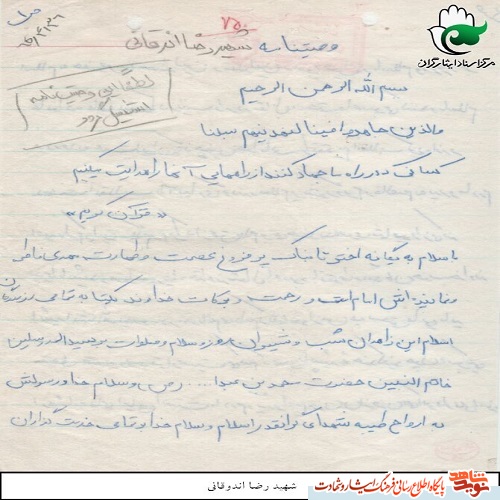 ۷۵۰
وصیتنامه شهید رضا اندقانی
مرکز اسناد ایثارگران
لطفا این وصیتنامه
بسم الله الرحمن الرحیم
والذین جاهدوا فینا لنهدینهم سبلنا
کسانی که در راه ما جهاد کنند از راهنمایی آنها را هدایت میکنیم
«قرآن کریم»
با سلام به یگانه اختر تابناک پر فروغ عصمت و طهارت مهدی ناظر
و نماینده اش امام امت و رحمت و برکات خداوند یکتا به تمامی رزمندگان
اسلام این زاهدان شب و شیران روز و سلام و صلوات بر سید المرسلین
خاتم النبیین حضرت محمد بن عبدا... (ص) و سلام خدا و رسولش
به ارواح طیبه شهدای گرانقدر اسلام و سلام خدا و تمامی خدمت گذاران
شهید رضا اندوقانی
پایگاه اطلاع رسانی فرهنگ ایثار و شهادت
نوید شاهد